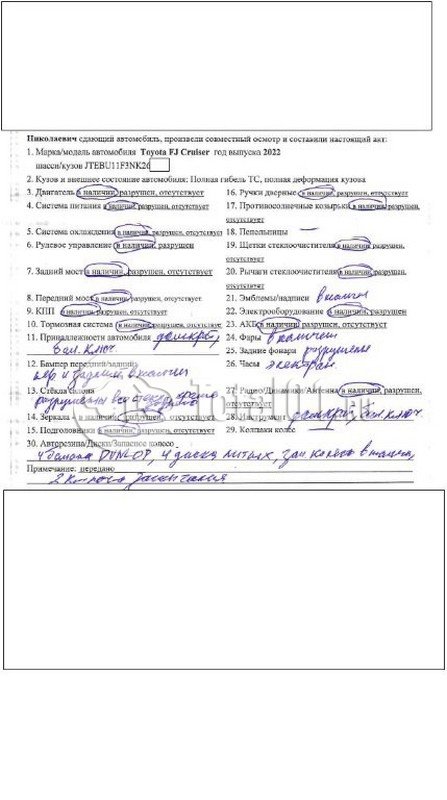 Николаевич сдающий автомобиль, произвели совместный осмотр и составили настоящий акт:
1. Марка/модель автомобиля Toyota FJ Cruiser год выпуска 2022
шасси/кузов JTEBU11F3NK26
2. Кузов и внешнее состояние автомобиля: Полная гибель ТС, полная деформация кузова
3. Двигатель в наличии, разрушен, отсутствует
4. Система питания в наличии, разрушен, отсутствует
5. Система охлаждения в наличии, разрушен, отсутствует
6. Рулевое управление в наличии, разрушен
7. Задний мост в наличии, разрушен, отсутствует
8. Передний мост в наличии, разрушен, отсутствует
9. КПП в наличии, разрушен, отсутствует
10. Тормозная система в наличии, разрушен, отсутствует
11. Принадлежности автомобиля домкрат,
бал. ключ
12. Бампер передний/задний
пер и задний в наличии
13. Стёкла салона
разрушены все стекла кроме
14. Зеркала в наличии, разрушен, отсутствует
15. Подголовники в наличии, разрушен, отсутствует
16. Ручки дверные в наличии, разрушен, отсутствует
17. Противосолнечные козырьки в наличии, разрушен,
отсутствует
18. Пепельницы —
19. Щетки стеклоочистителя в наличии, разрушен,
отсутствует
20. Рычаги стеклоочистителя в наличии, разрушен,
отсутствует
21. Эмблемы/надписи в наличии
22. Электрооборудование в наличии, разрушен
23. АКБ в наличии, разрушен, отсутствует
24. Фары в наличии
25. Задние фонари разрушены
26. Часы электрон
27. Радио/Динамики/Антенна в наличии, разрушен,
отсутствует
28. Инструмент домкрат, бал. ключ
29. Колпаки колес
30. Авторезина/Диски/Запасное колесо
4 баллона DUNLOP, 4 диска литых, зап. колесо в наличии,
Примечание: передано
2 ключа зажигания